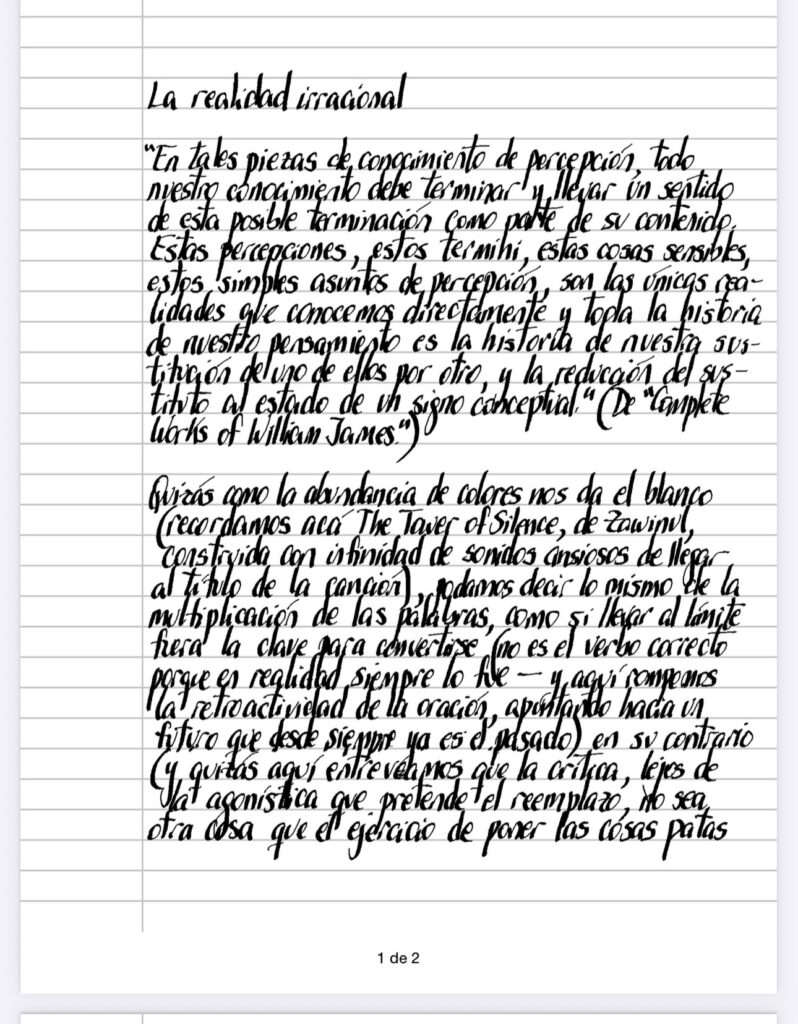 La realidad irracional
"En tales piezas de conocimiento de percepción, todo
nuestro conocimiento debe terminar y llevar un sentido
de esta posible terminación como parte de su contenido.
Estas percepciones, estos termini, estas cosas sensibles,
estos simples asuntos de percepción, son las únicas rea-
lidades que conocemos directamente y toda la historia
de nuestro pensamiento es la historia de nuestra sus-
titución del uno de ellos por otro, y la reducción del sus-
tituto al estado de un signo conceptual." (De "Complete
Works of William James.")
Quizás como la abundancia de colores nos da el blanco
(recordamos acá The Tower of Silence, de Zawinul,
construida con infinidad de sonidos ansiosos de llegar
al título de la canción), podamos decir lo mismo de la
multiplicación de las palabras, como si llevar al límite
fuera la clave para convertirse (no es el verbo correcto
porque en realidad siempre lo fue — y aquí rompemos
la retroactividad de la oración, apuntando hacia un
futuro que desde siempre ya es el pasado) en su contrario
(y quizás aquí entreveamos que la crítica, lejos de
la agonística que pretende el reemplazo, no sea
otra cosa que el ejercicio de poner las cosas patas
1 de 2